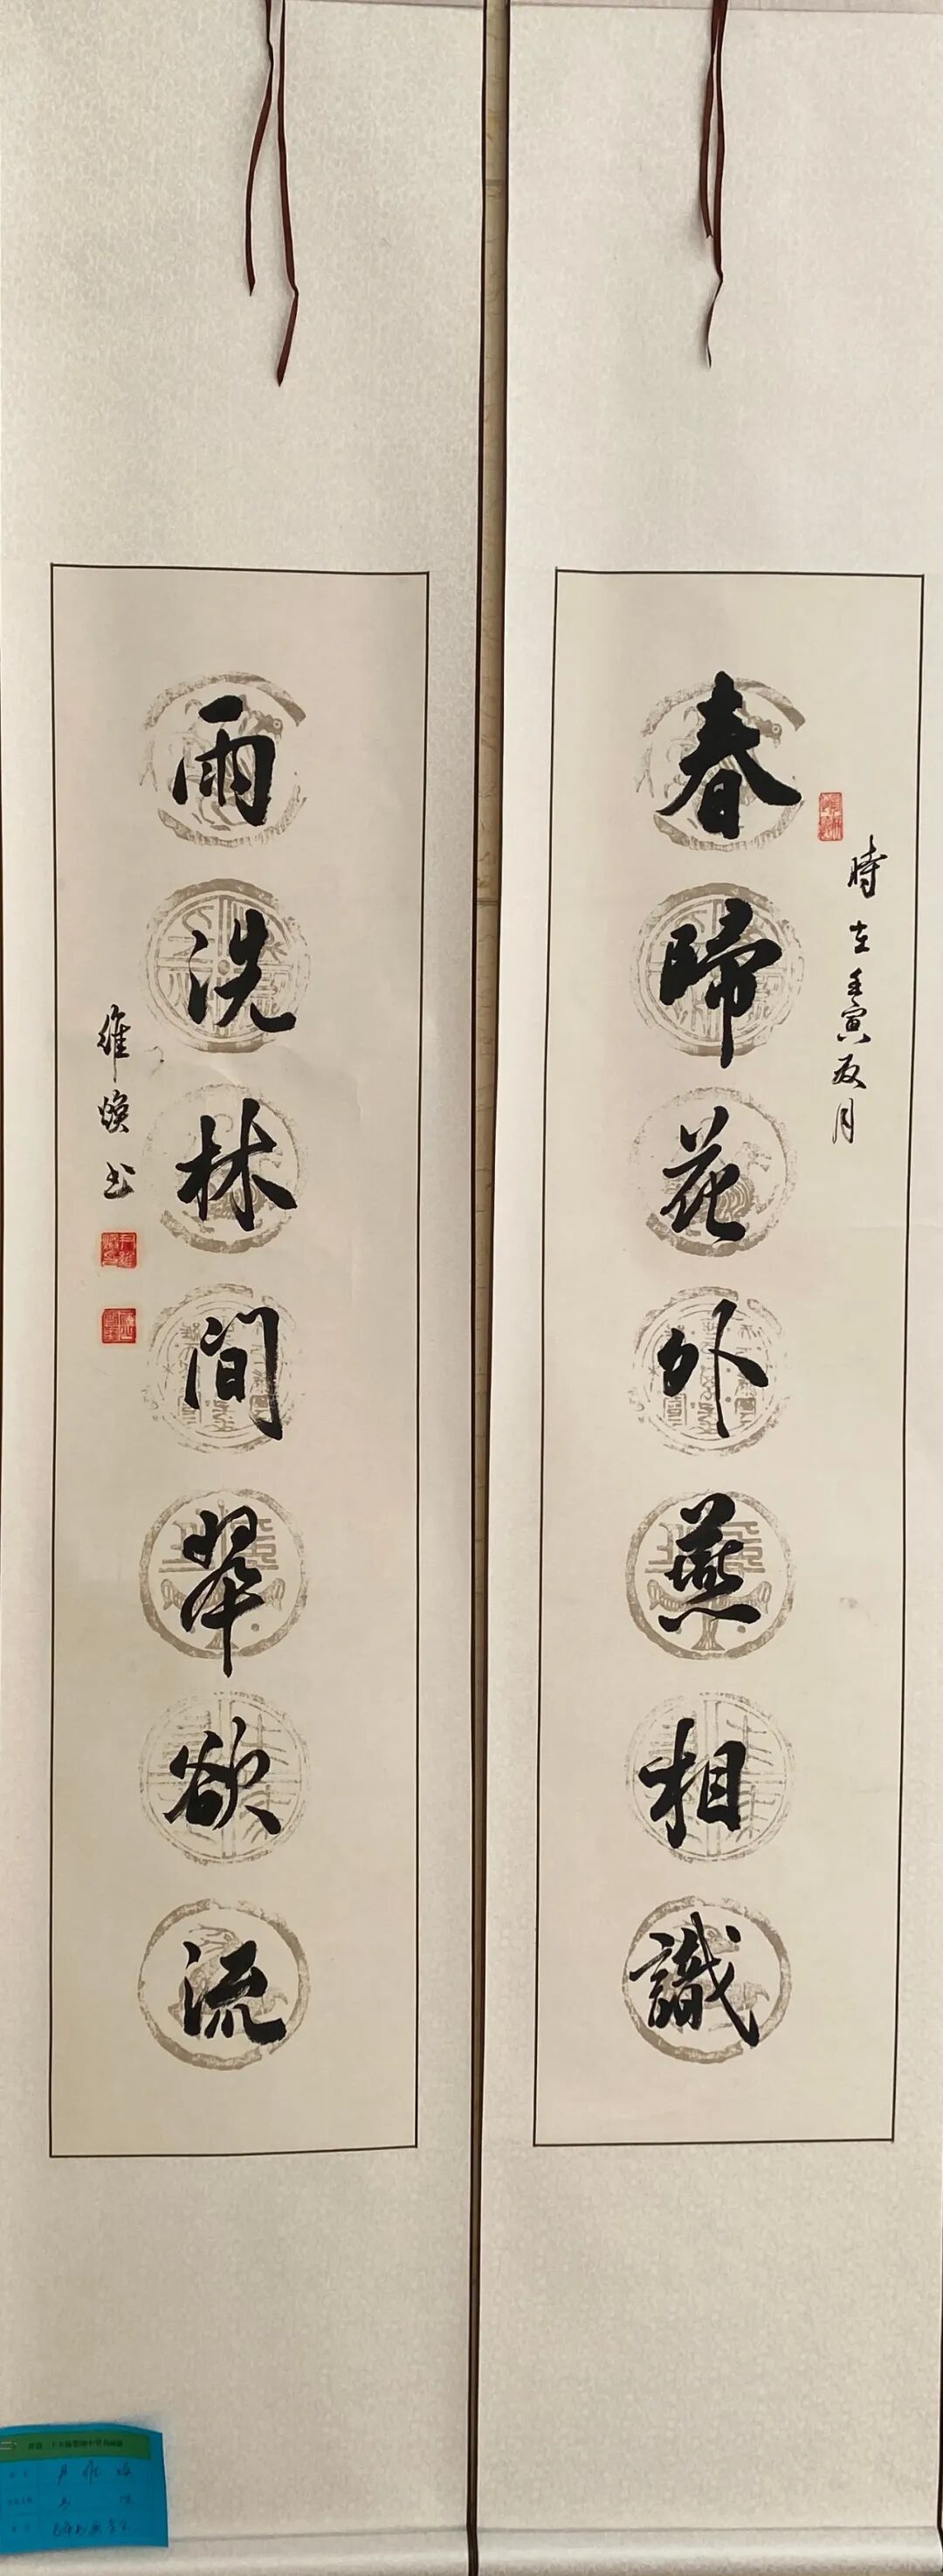 春歸花外燕相識
時在壬寅夏月
雨洗林間翠欲流
維煥書